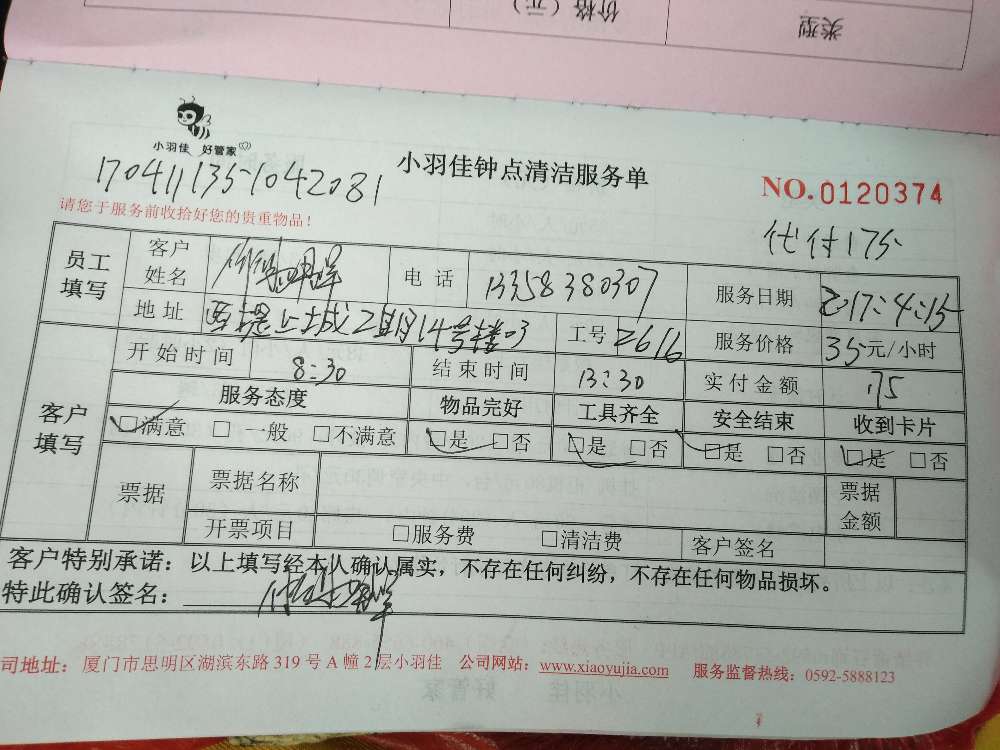 价格（元）
类型
小羽佳 好管家
小羽佳钟点清洁服务单
NO.0120374
1704111351042081
请您于服务前收拾好您的贵重物品！
代付175
员工填写
客户姓名
电话 13358380307
服务日期 2017:4:15
地址 14号楼
工号 2616
服务价格 35元/小时
客户填写
开始时间 8:30
结束时间 13:30
实付金额 175
服务态度 物品完好 工具齐全 安全结束 收到卡片
☑满意 □一般 □不满意 ☑是 □否 ☑是 □否 ☑是 □否 ☑是 □否
票据
票据名称
票据金额
开票项目 □服务费 □清洁费 客户签名
客户特别承诺：以上填写经本人确认属实，不存在任何纠纷，不存在任何物品损坏。
特此确认签名：
司地址：厦门市思明区湖滨东路319号A幢2层小羽佳 公司网站：www.xiaoyujia.com 服务监督热线：0592-5888123